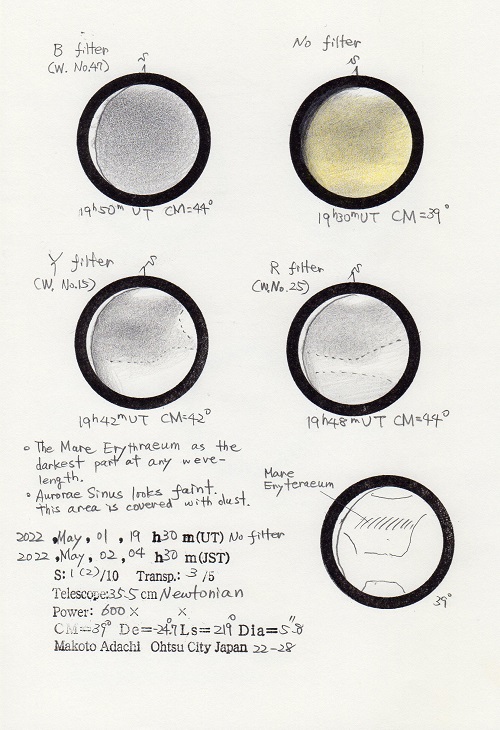 B filter
(W. No.47)
S
19h50m UT CM=44°
No filter
S
19h30mUT CM=39°
Y filter
(W. No.15)
S
19h42mUT CM=42°
R filter
(W.No.25)
S
19h48mUT CM=44°
The Mare Erythraeum as the
darkest part at any wave-
length.
Aurorae Sinus looks faint.
This area is covered with dust.
Mare
Eryteraeum
39°
2022, May, 01, 19 h30 m(UT) No filter
2022, May, 02, 04 h30 m(JST)
S: 1(2)/10 Transp.: 3/5
Telescope:35.5 cm Newtonian
Power: 600× ×
CM=39° De=-24.7 Ls=219° Dia=5.8"
Makoto Adachi Ohtsu City Japan 22-28